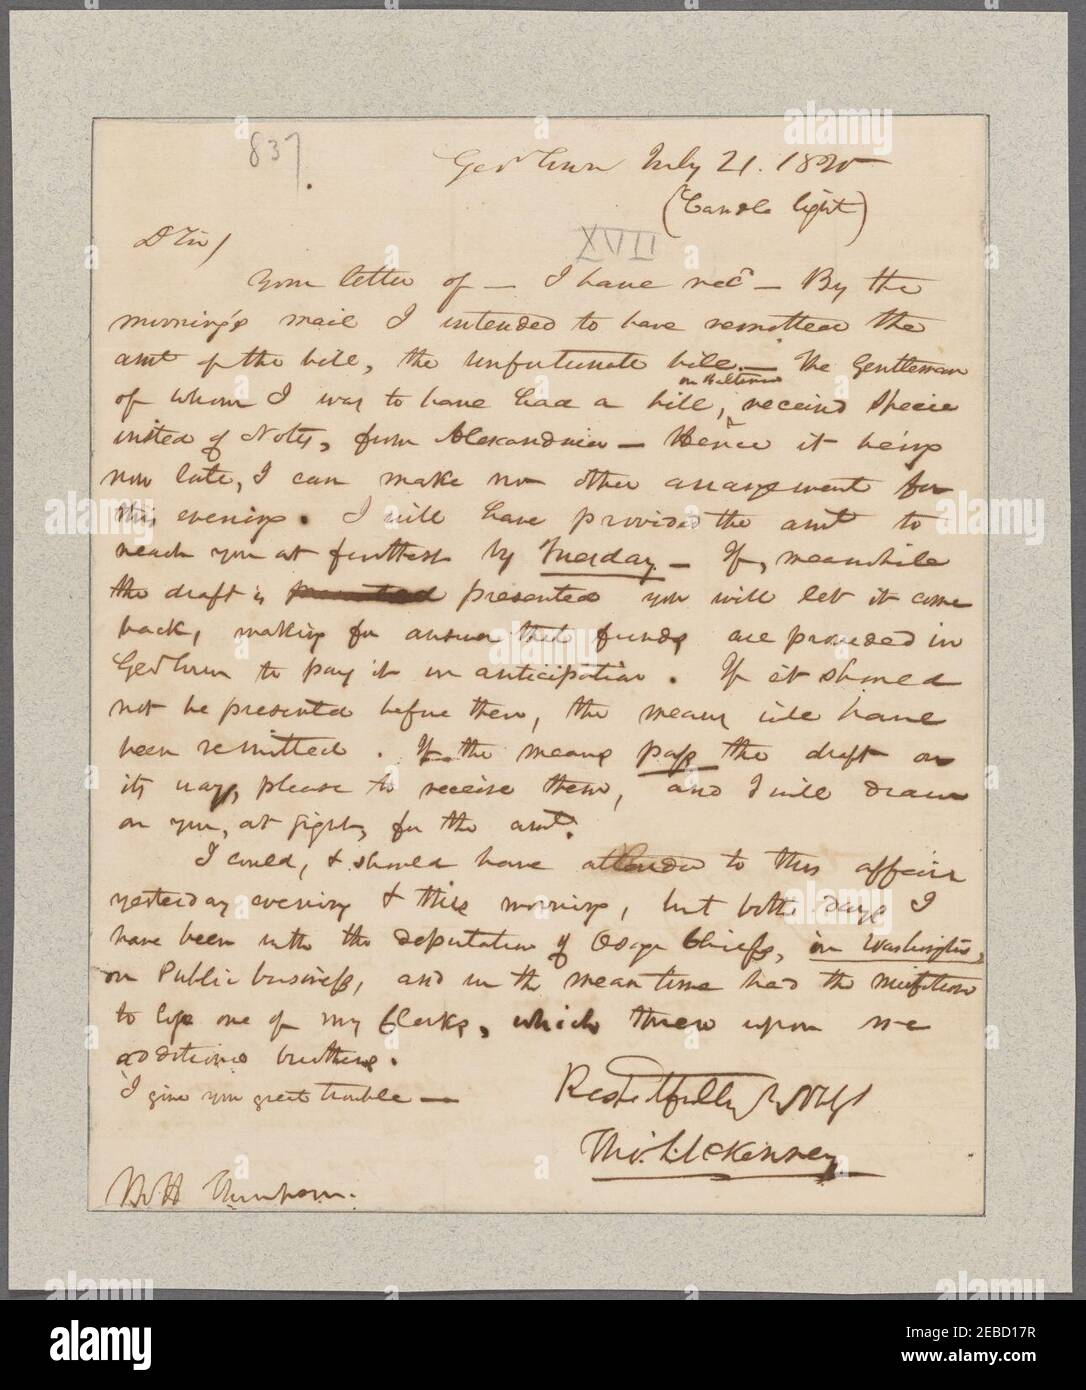 837.
Geo Town July 21. 1820
(Candle light)
XVIII
D Sir/
Your letter of — I have recd — By the
morning's mail I intended to have remitted the
amt of the bill, the unfortunate bill. — The Gentleman
on Baltimore
of whom I was to have had a bill, ^ receivd specie
insted of Notes, from Alexandria — Hence it being
now late, I can make no other arrangement for
this evening. I will have provided the amt to
reach you at furthest by Tuesday — If, meanwhile
the draft is presented you will let it come
back, making for answer that funds are provided in
Geo Town to pay it in anticipation. If it should
not be presented before then, the means will have
been remitted. If the means pass the draft on
its way, please to receive them, and I will draw
on you, at sight, for the amt.
I could, & should have attended to this affair
yesterday evening & this morning, but both days I
have been with the deputation of Osage Chiefs, in Washington,
on Public business, and in the mean time had the misfortune
to lose one of my Clerks, which threw upon me
additional burthens.
I give you great trouble —
Respectfully
Tho: L: McKenney
alamy
Image ID: 2EBD17R
www.alamy.com